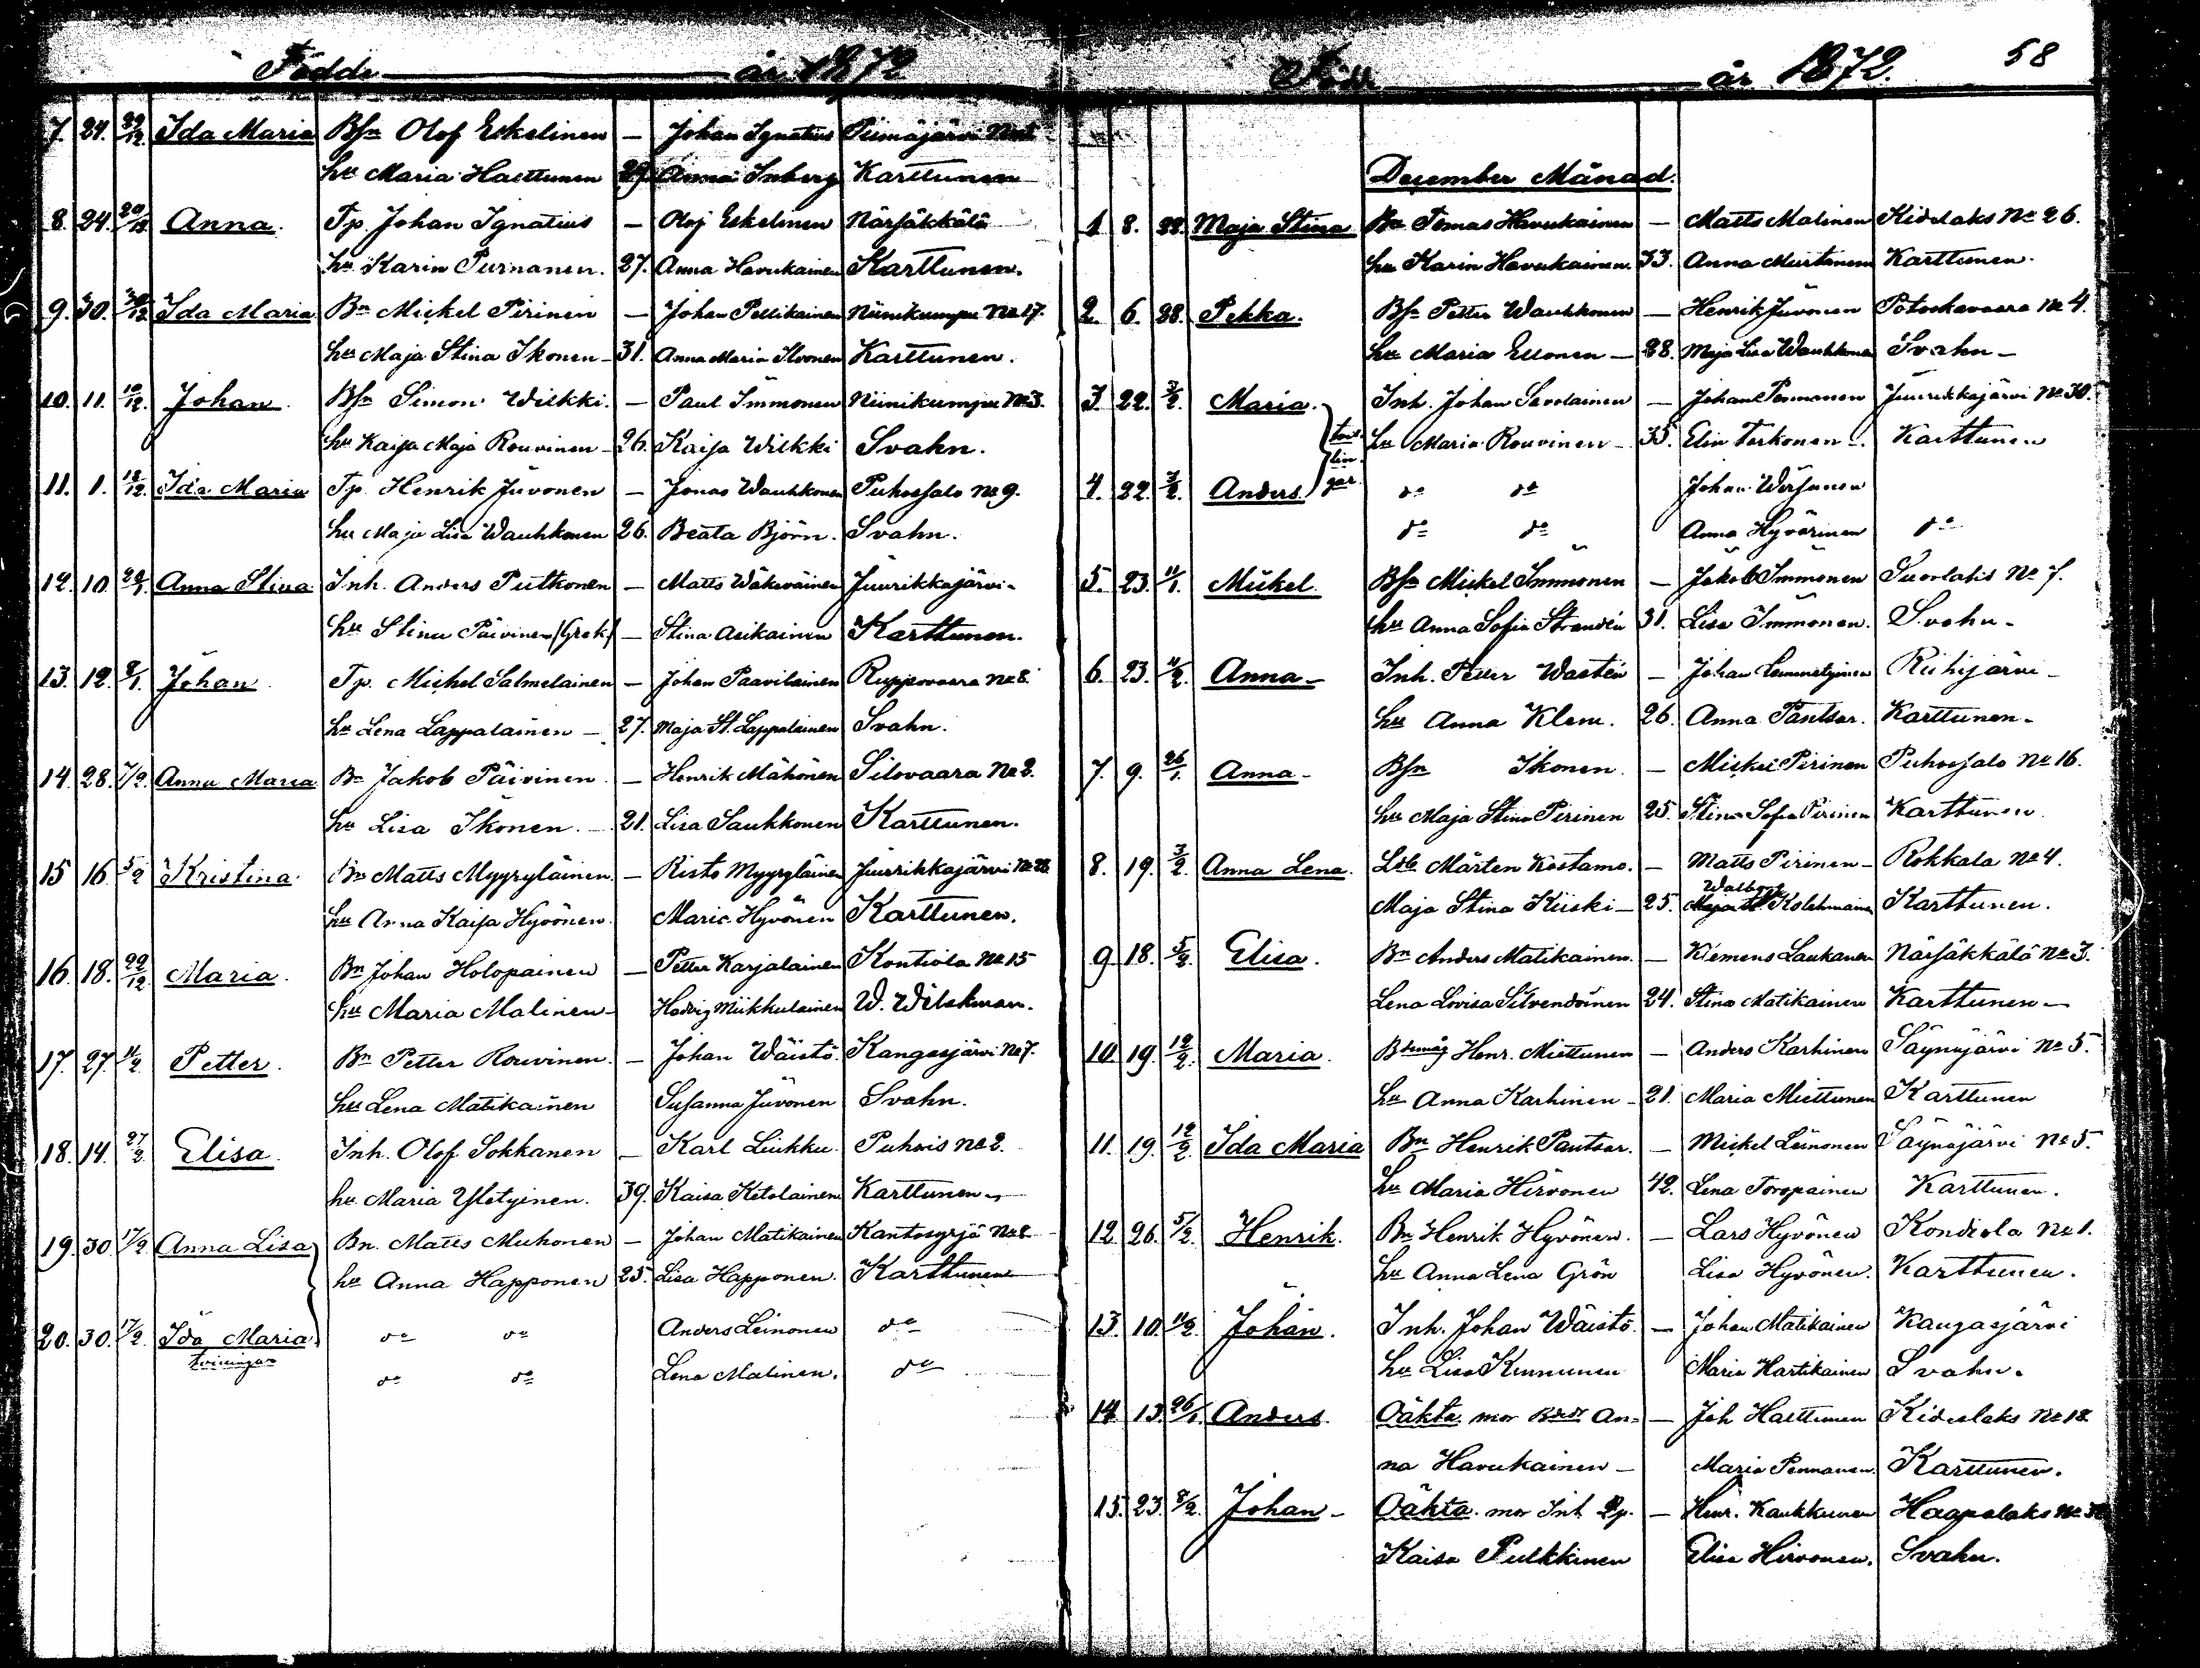 Födde år 1872
7. 24. 29/12. Ida Maria Bsn Olof Eskelinen — Johan Ignatius Piimäjärvi
hu Maria Haettunen 29. Anna Inberg Karttunen
8. 24. Anna. Tp. Johan Ignatius — Olof Eskelinen Närsäkkälä
hu Karin Purnanen. 27. Anna Havukainen Karttunen.
9. 30. 30/12 Ida Maria Bn Mickel Pirinen — Johan Pellikainen Niinikumpu No 17.
hu Maja Stina Ikonen — 31. Anna Maria Ilvonen Karttunen.
10. 11. 10/12. Johan. Bsn Simon Wilkki. — Paul Immonen Niinikumpu No 3.
hu Kaisa Maja Rouvinen — 26. Kaisa Wilkki Svahn.
11. 1. 12/12. Ida Maria Tp. Henrik Juvonen — Jonas Wauhkonen Puhossalo No 9.
hu Maja Lisa Wauhkonen 26. Beata Björn. Svahn.
12. 10. Anna Stina Inh. Anders Putkonen — Matts Wäkeväinen Juurikkajärvi -
hu Stina Päivinen (Grek) — Stina Asikainen Karttunen.
13. 12. 8/1. Johan Tp. Michel Salmelainen — Johan Paavilainen Ruppovaara No 8.
hu Lena Lappalainen — 27. Maja St. Lappalainen Svahn.
14. 28. 7/2. Anna Maria Bn Jakob Päivinen. — Henrik Mähönen Silovaara No 2.
hu Lisa Ikonen. — 21. Lisa Saukkonen Karttunen.
15 16. 5/2 Kristina Bn Matts Myyryläinen. — Risto Myyryläinen Juurikkajärvi No 28.
hu Anna Kaisa Hyvönen. Maria Hyvönen Karttunen.
16. 18. 29/12 Maria. Bn Johan Holopainen — Petter Karjalainen Kontiola No 15
hu Maria Malinen — Hedvig Miikkulainen W. Wilskman.
17. 27. 11/2. Petter. Bn Petter Rouvinen. — Johan Wäistö. Kangasjärvi No 7.
hu Lena Matikainen Susanna Juvonen Svahn.
18. 14. 27/2. Elisa. Inh. Olof Sokkanen — Karl Liukku. Puhois No 2.
hu Maria Yletyinen. 39. Kaisa Ketolainen Karttunen.
19. 30. 17/2 Anna Lisa Bn. Matts Muhonen — Johan Matikainen Kantosyrjä No 8
hu Anna Happonen 25. Lisa Happonen. Karttunen
20. 30. 17/2. Ida Maria do do Anders Leinonen do
tvillingar do do Lena Malinen. do
år 1872. 58
December Månad.
1. 8. 28. Maja Stina Bn Tomas Havukainen — Matts Malinen Kidelaks No 26.
hu Karin Havukainen. 33. Anna Mustonen Karttunen.
2. 6. 28. Pekka. Bsn Petter Wauhkonen — Henrik Juvonen Potoskavaara No 4.
hu Maria Ellonen — 28. Maja Lisa Wauhkonen Svahn —
3. 22. 3/2. Maria. Inh. Johan Savolainen — Johan Pennanen Juurikkajärvi No 30.
hu Maria Rouvinen — 35. Elin Torkonen —. Karttunen
4. 22. 3/2. Anders. do do Johan Wirsunen
do do Anna Hyvärinen do
5. 23. 11/1. Mickel. Bsn Mickel Immonen — Jakob Immonen Suorlaks No 7.
hu Anna Sofia Strandén 31. Lisa Immonen. Svahn -
6. 23. 11/2. Anna — Inh. Petter Wastén — Johan Lemmetyinen Riihijärvi -
hu Anna Klem. 26. Anna Pantsar. Karttunen -
7. 9. 26/1. Anna — Bsn Ikonen. — Mickel Pirinen Puhossalo No 16.
hu Maja Stina Pirinen 25. Stina Sofia Pirinen Karttunen
8. 19. 3/2. Anna Lena. Mårten Kostamo. — Matts Pirinen — Rokkala No 4.
Maja Stina Kiiski — 25. Walborg Kolehmainen Karttunen.
9. 18. 5/2. Elisa. Bn Anders Matikainen. — Klemens Laukanen Närsäkkälä No 3.
Lena Lovisa Silvendoinen 24. Stina Matikainen Karttunen —
10. 19. 12/2. Maria. Henr. Miettunen — Anders Karhinen Säynäjärvi No 5.
hu Anna Karhinen — 21. Maria Miettunen Karttunen
11. 19. 12/2. Ida Maria Bn Henrik Pantsar. — Mickel Leinonen Säynäjärvi No 5.
hu Maria Hirvonen 42. Lena Toropainen Karttunen.
12 26. 5/2. Henrik. Bn Henrik Hyvönen. — Lars Hyvönen Kondiola No 1.
hu Anna Lena Grön Lisa Hyvönen. Karttunen.
13. 10. 11/2. Johan. Inh. Johan Wäistö. — Johan Matikainen Kangasjärvi
hu Lisa Kinnunen Maria Hartikainen Svahn.
14 13. 26/1. Anders. Oäkta. mor An- — Joh Haettunen Kidelaks No 18.
na Havukainen — Maria Pennanen. Karttunen.
15. 23. 8/2. Johan — Oäkta. mor Inh. — Henr. Kaukkunen Haapalaks
Kaisa Pulkkinen Elisa Hirvonen. Svahn.